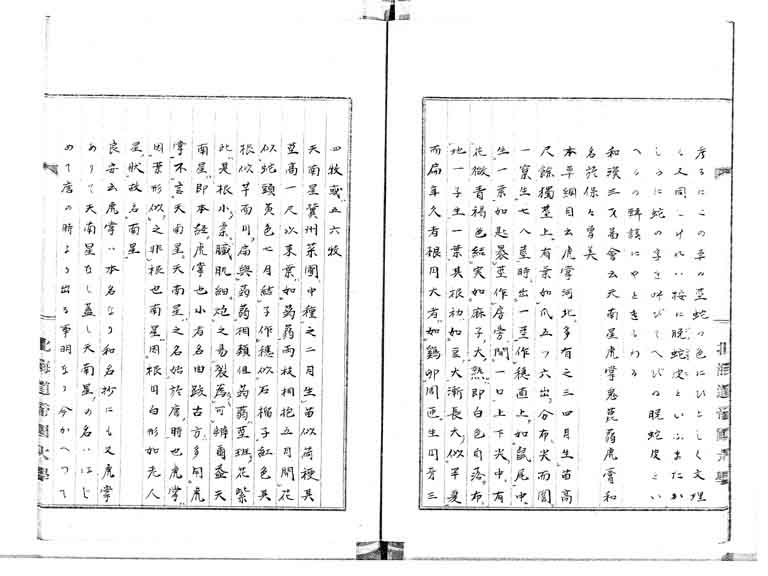 考るにこの草の茎蛇の色にひとしく文理
も又同しけれハ按に脱蛇皮といふまたか
しらに蛇の字を呼びてへびの脱蛇皮とい
へるの轉語にやとをもわる
和漢三才圖會云天南星虎掌鬼蒟蒻虎膏和
名於保保曽美
本草綱目出虎掌河北多有之三四月生苗高
尺餘獨茎上有葉如爪五六出分布尖而圓
一窠生七八茎時出一茎作穂直上如鼠尾中
生一葉如匙裹茎作房旁開一口上下尖中有
花微青褐色結実如麻子大熟即白色自落布
地一子生一葉其根初如豆大漸長大似半夏
而扁年久者根円大者如鶏卵周匝生円牙三
四牧或五六牧
天南星冀州菜園中種之二月生苗似荷梗其
茎高一尺以来葉如蒟蒻両枝相抱五月開花
似蛇頭黄色七月結子作穂似石榴子紅色其
根似芋而円扁與蒟蒻相類但蒟蒻茎斑花紫
此是根小柔膩肌細炮之易裂為可辨爾盖天
南星即本経虎掌也小者名由跋古方多用虎
掌不言天南星天南星之名始於唐時也虎掌
因葉形似之非根也南星因根円白形如老人
星状故名南星
良安云虎掌ハ本名なり和名抄にも又虎掌
ありて天南星なし蓋し天南星の名いはじ
めて唐の時より出る事明なり今かへつて
北海道帝國大學
北海道帝國大學